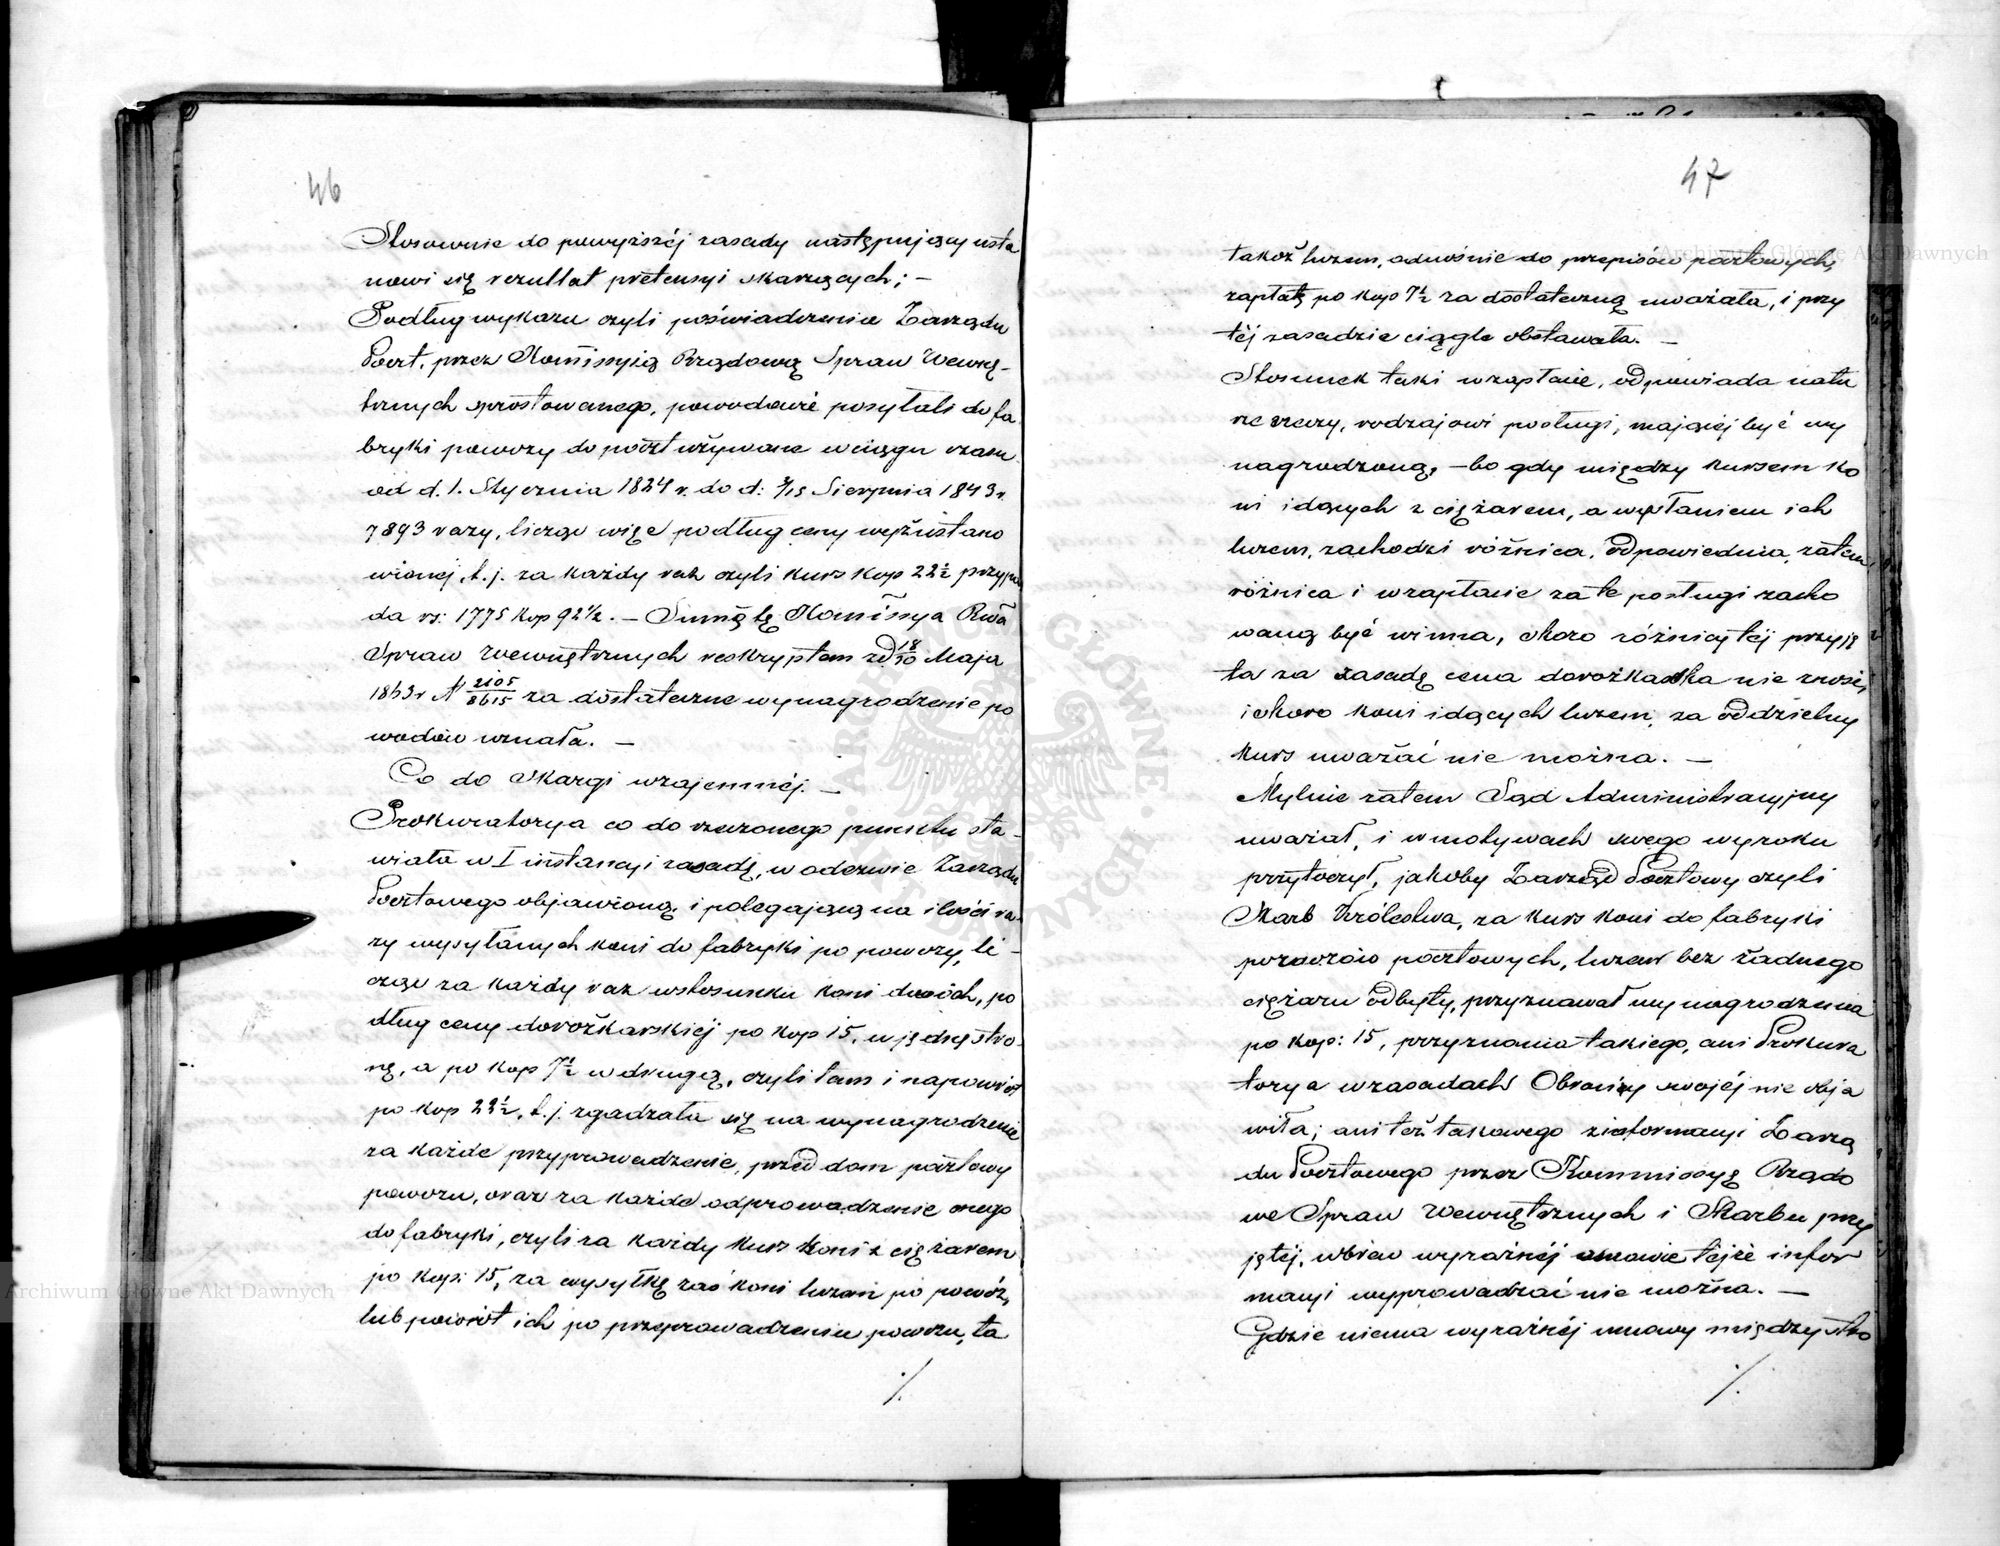 46
Stosownie do powyższéj zasady następujący usta
nowi się rezultat pretensyi skarzących; —
Podług wykazu czyli poświadczenia Zarządu
Poczt. przez Kommissyią Rządową Spraw Wewnę-
trznych sprostowanego, powodowie posyłali do fa
bryki powozy do poczt używane w ciągu czasu
od d. 1. Stycznia 1824 r. do d: 3/15 Sierpnia 1843 r.
7893 razy, licząc więc podług ceny wyż ustano
wionej, t. j. za każdy raz czyli kurs kop 22½ przypa
da rs: 1775 kop 92½. — Summę tę Kommissya Rwa
Spraw Wewnętrznych reskryptem zd 18/30 Maja
1843 r N 2105/8615 za dostateczne wynagrodzenie po
wodów uznała. —
Co do Skargi wzajemnéj. —
Prokuratorya co do rzeczonego punktu sta-
wiała w I instancyi zasadę, w odezwie Zarządu
Pocztowego objawioną, i polegającą na ilości ra-
zy wysyłanych koni do fabryki po powozy, li-
cząc za każdy raz w stosunku koni dwóch, po
dług ceny dorożkarskiéj po kop 15, w jednę stro-
nę, a po kop 7½ w drugą, czyli tam i napowrót
po kop 22½, t. j. zgadzała się na wynagrodzenie
za każde przyprowadzenie, przed dom pocztowy
powozu, oraz za każde odprowadzenie onego
do fabryki, czyli za każdy kurs koni z ciężarem
po kop: 15, za wysyłkę zaś koni luzem po powóz,
lub powrót ich po przyprowadzeniu powozu, ta
./.
47
takoż luzem, odnośnie do przepisów pocztowych,
zapłatę po kop 7½ za dostateczną uważała, i przy
téj zasadzie ciągle obstawała. —
Stosunek taki w zapłacie, odpowiada natu
rze rzeczy, rodzajowi posługi, mającéj być wy
nagrodzoną, — bo gdy między kursem ko
ni idących z ciężarem, a wysłaniem ich
luzem, zachodzi różnica, odpowiednia, zatem
różnica i w zapłacie za te posługi zacho
waną być winna, skoro różnicy téj przyję
ta za zasadę cena dorożkarska nie znosi,
i skoro koni idących luzem, za oddzielny
kurs uważać nie można. —
Mylnie zatem Sąd Administracyjny
uważał, i w motywach swego wyroku
przytoczył, jakoby Zarząd Pocztowy czyli
Skarb Królestwa, za kurs koni do fabryki
powozów pocztowych, luzem bez żadnego
ciężaru odbyty, przyznawał wynagrodzenia
po kop: 15, przyznania takiego, ani Prokura
torya w zasadach Obrony swojéj nie obja
wiła; ani też takowego z informacyi Zarzą
du Pocztowego przez Kommissyę Rządo
we Spraw Wewnętrznych i Skarbu przy
jętéj, wbrew wyraźnéj osnowie tejże infor
macyi wyprowadzać nie można. —
Gdzie niema wyraźnéj umowy między stro
./.
Archiwum Główne Akt Dawnych
Archiwum Główne Akt Dawnych
ARCHIWUM GŁÓWNE AKT DAWNYCH